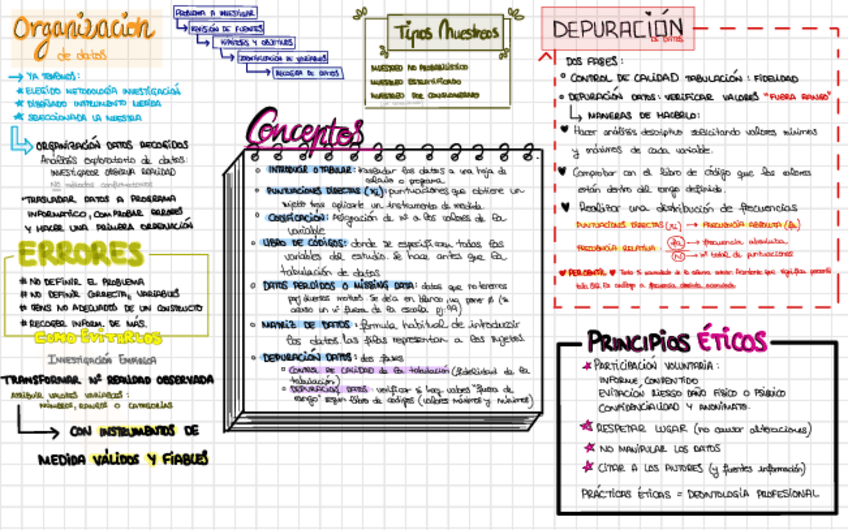 Organización
de datos
→ YA TENEMOS:
* ELEGIDO METODOLOGÍA INVESTIGACIÓN
* DISEÑADO INSTRUMENTO MEDIDA
* SELECCIONADA LA MUESTRA
ORGANIZACIÓN DATOS RECOGIDOS
Análisis exploratorio de datos:
INVESTIGADOR OBSERVA REALIDAD
NO métodos confirmatorios
"TRASLADAR DATOS A PROGRAMA
INFORMÁTICO, COMPROBAR ERRORES
Y HACER UNA PRIMERA ORDENACIÓN
ERRORES
# NO DEFINIR EL PROBLEMA
# NO DEFINIR CORRECTA. VARIABLES
# ITEMS NO ADECUADOS DE UN CONSTRUCTO
# RECOGER INFORM. DE MÁS.
COMO EVITARLOS
INVESTIGACIÓN EMPÍRICA
TRANSFORMAR Nº REALIDAD OBSERVADA
ATRIBUIR VALORES VARIABLES:
NÚMEROS, RANGOS O CATEGORÍAS
→ CON INSTRUMENTOS DE
MEDIDA VÁLIDOS Y FIABLES
PROBLEMA A INVESTIGAR
REVISIÓN DE FUENTES
HIPÓTESIS Y OBJETIVOS
IDENTIFICACIÓN DE VARIABLES
RECOGIDA DE DATOS
Tipos Muestreos
MUESTREO NO PROBABILÍSTICO
MUESTREO ESTRATIFICADO
MUESTREO POR CONGLOMERADO
Conceptos
INTRODUCIR O TABULAR: trasladar los datos a una hoja de
cálculo o programa
PUNTUACIONES DIRECTAS (Xi): puntuaciones que obtiene un
sujeto tras aplicarle un instrumento de medida
CODIFICACIÓN: Asignación de nº a los valores de la
variable
LIBRO DE CÓDIGOS: donde se especifican todas las
variables del estudio. Se hace antes que la
tabulación de datos
DATOS PERDIDOS O MISSING DATA: datos que no tenemos
por diversos motivos. Se deja en blanco, no poner 0 (si
acaso un nº fuera de la escala ej: 99)
MATRIZ DE DATOS: fórmula habitual de introducir
los datos. Las filas representan a los sujetos.
DEPURACIÓN DATOS: dos fases
CONTROL DE CALIDAD de la tabulación (fidelidad de la
tabulación)
DEPURACIÓN DATOS: verificar si hay valores "fuera de
rango" según libro de códigos (valores máximos y mínimos)
DEPURACIÓN
DE DATOS
DOS FASES:
CONTROL DE CALIDAD TABULACIÓN: FIDELIDAD
DEPURACIÓN DATOS: VERIFICAR VALORES "FUERA RANGO"
MANERAS DE HACERLO:
♥ Hacer análisis descriptivo solicitando valores mínimos
y máximos de cada variable.
♥ Comprobar con el libro de código que los valores
están dentro del rango definido.
♥ Realizar una distribución de frecuencias
PUNTUACIONES DIRECTAS (Xi) → FRECUENCIA ABSOLUTA (fa)
FRECUENCIA RELATIVA: fa → frecuencia absoluta
N → nº total de puntuaciones
PRINCIPIOS ÉTICOS
★ PARTICIPACIÓN VOLUNTARIA:
INFORME, CONSENTIDO
EVITACIÓN RIESGO DAÑO FÍSICO O PSÍQUICO
CONFIDENCIALIDAD Y ANONIMATO.
★ RESPETAR LUGAR (no causar alteraciones)
★ NO MANIPULAR LOS DATOS
★ CITAR A LOS AUTORES (y fuentes información)
PRÁCTICAS ÉTICAS = DEONTOLOGÍA PROFESIONAL